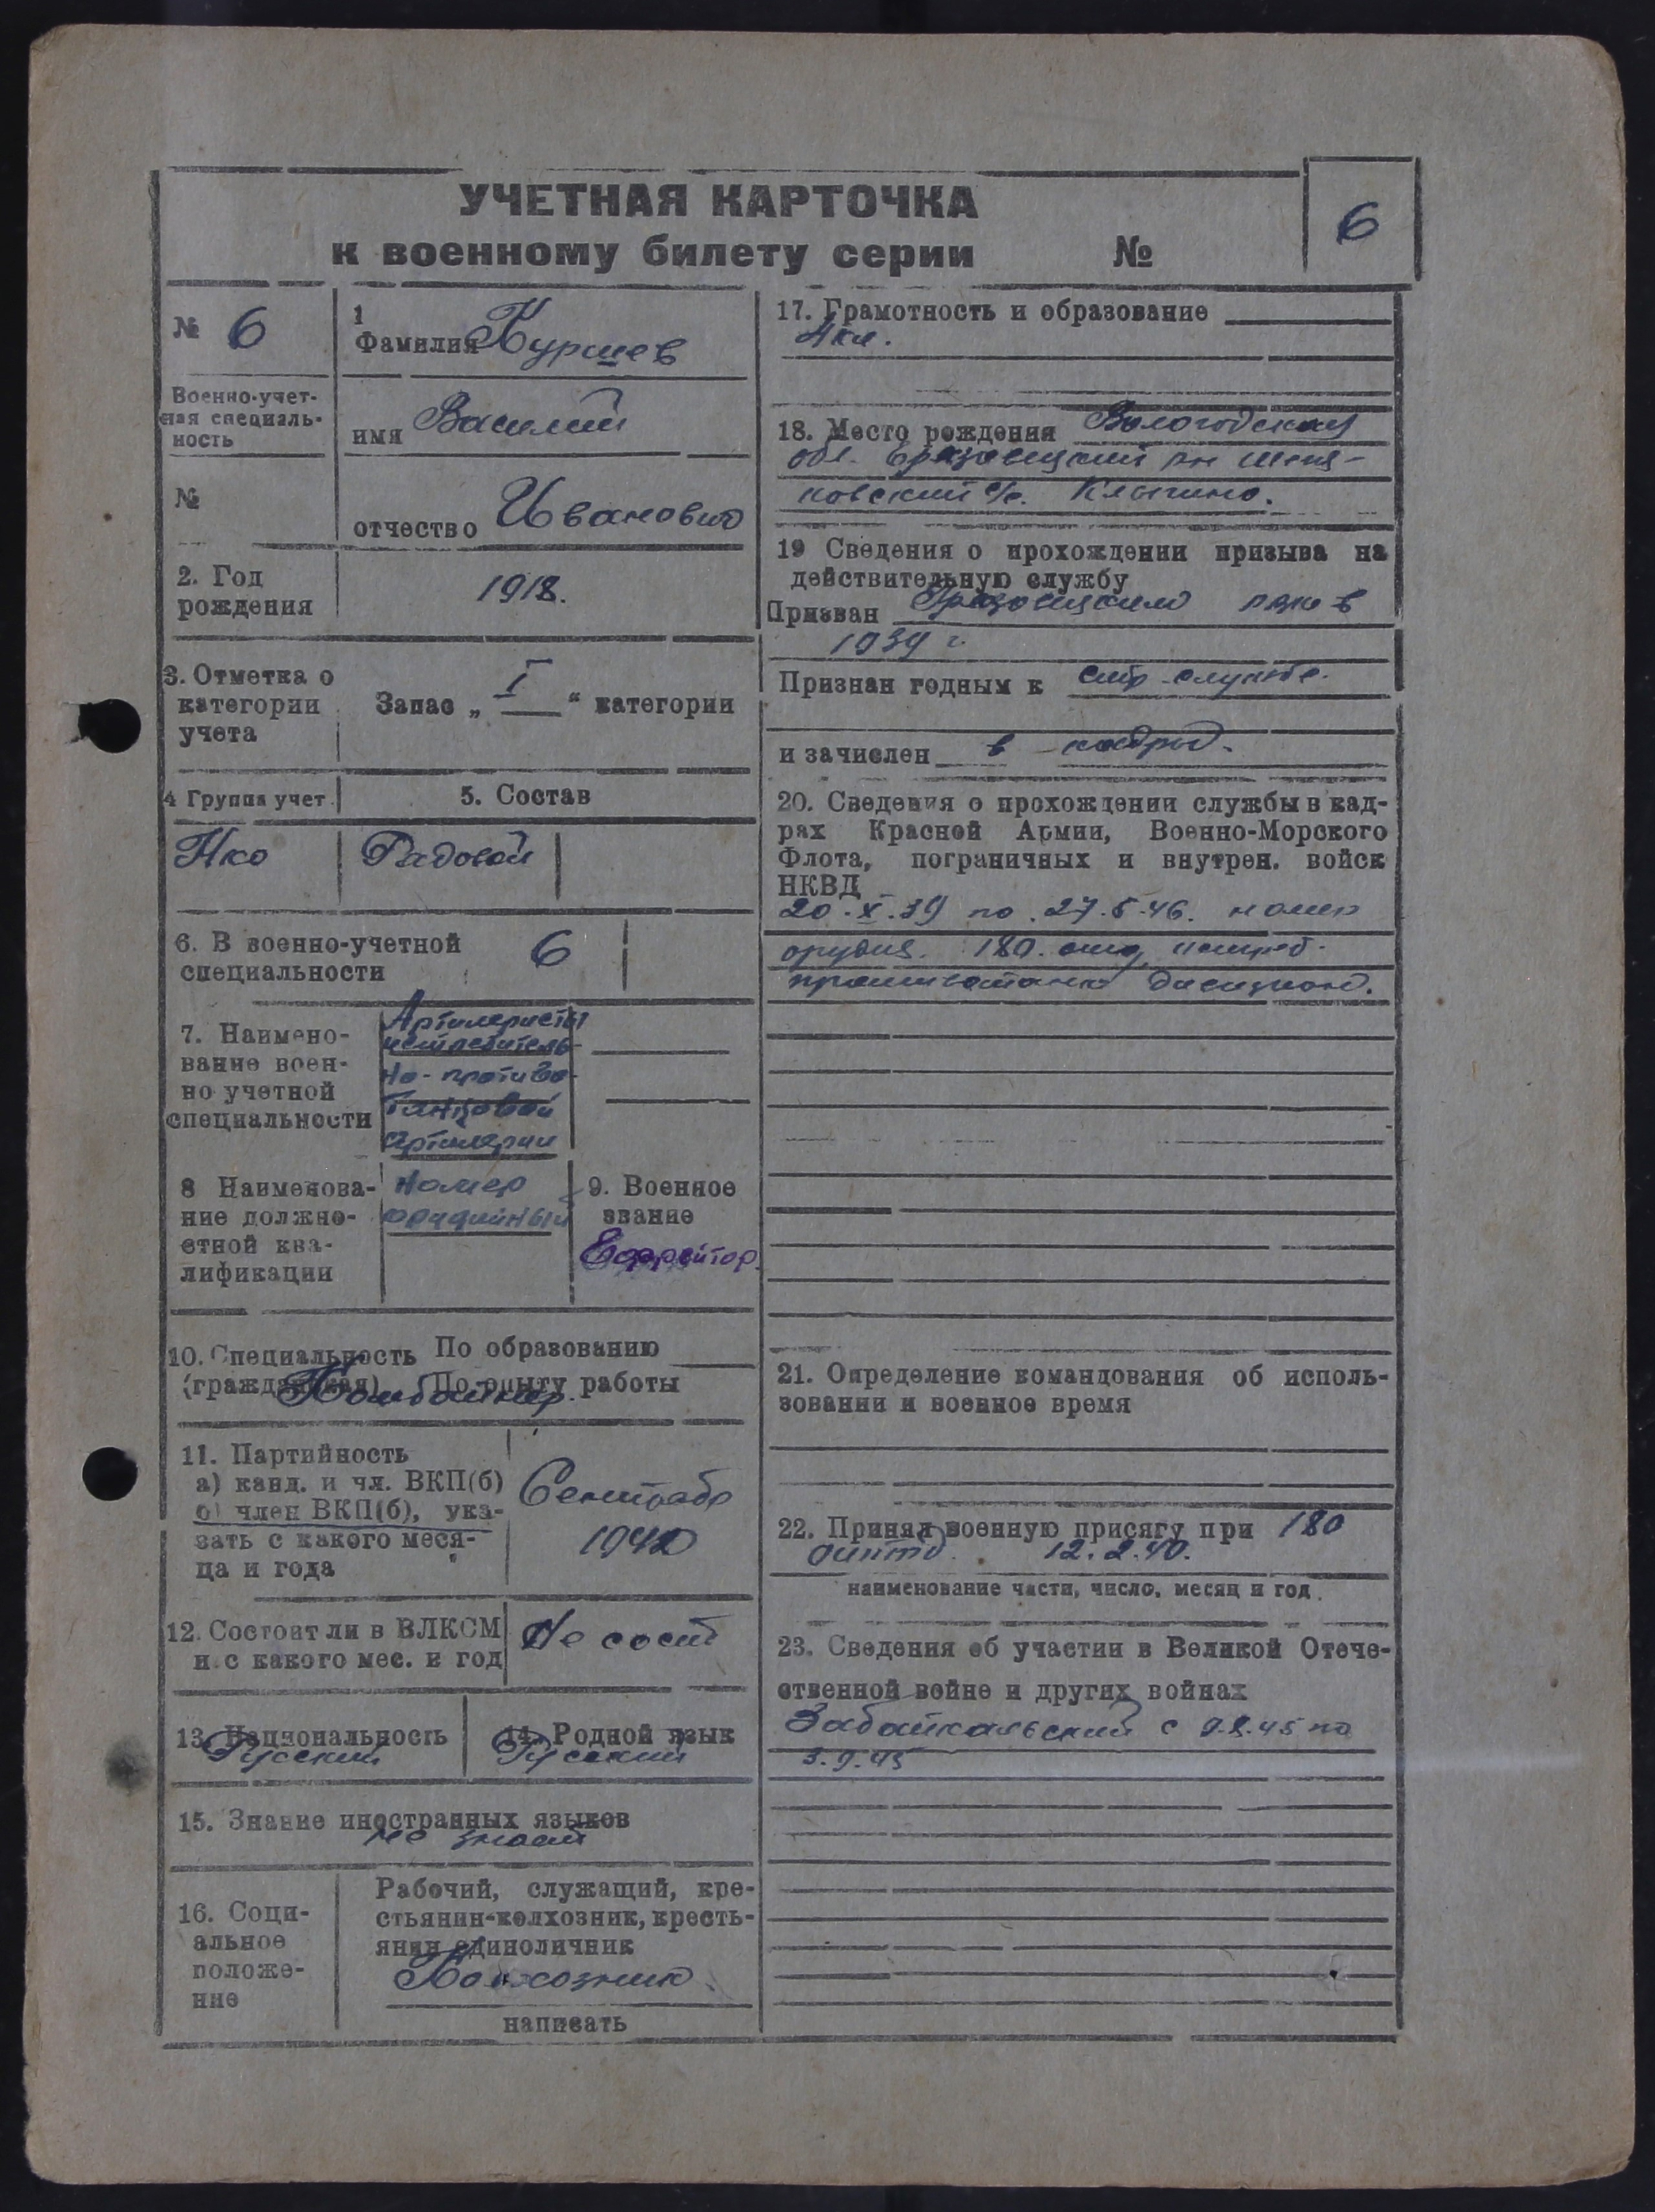 УЧЕТНАЯ КАРТОЧКА
к военному билету серии №
6
№ 6
Военно-учет-
ная специаль-
ность
№
1
Фамилия Куршев
имя Василий
отчество Иванович
2. Год
рождения
1918.
3. Отметка о
категории
учета
Запас „ I “ категории
4 Группа учет.
5. Состав
Нко
Рядовой
6. В военно-учетной
специальности
6
7. Наимено-
вание воен-
но учетной
специальности
Артилеристы
истребитель-
но-противо-
танковой
артилерии
8 Наименова-
ние должно-
стной ква-
лификации
Номер
орудийный
9. Военное
звание
Ефрейтор.
10. Специальность По образованию
(гражданская) По опыту работы
Комбайнер.
11. Партийность
а) канд. и чл. ВКП(б)
о) член ВКП(б), ука-
зать с какого меся-
ца и года
Сентябр
1942
12. Состоит ли в ВЛКСМ
и с какого мес. и год
Не сост
13. Национальность
Русский
14. Родной язык
Русский
15. Знание иностранных языков
не знает
16. Соци-
альное
положе-
ние
Рабочий, служащий, кре-
стьянин-колхозник, кресть-
янин единоличник
Колхозник
написать
17. Грамотность и образование
4 кл.
18. Место рождения Вологодская
обл. Грязовецкий рн
с/с. Клыпино.
19 Сведения о прохождении призыва на
действительную службу
Призван Грязовецким в
1939 г.
Признан годным к стр. службе.
и зачислен в кадры.
20. Сведения о прохождении службы в кад-
рах Красной Армии, Военно-Морского
Флота, пограничных и внутрен. войск
НКВД
20.X.39 по 27.5.46. номер
орудия. 180. отд. истреб.
противотанк дивизион.
21. Определение командования об исполь-
зовании и военное время
22. Принял военную присягу при 180
12.2.40.
наименование части, число, месяц и год.
23. Сведения об участии в Великой Отече-
ственной войне и других войнах
Забайкальский с 9.8.45 по
3.9.45